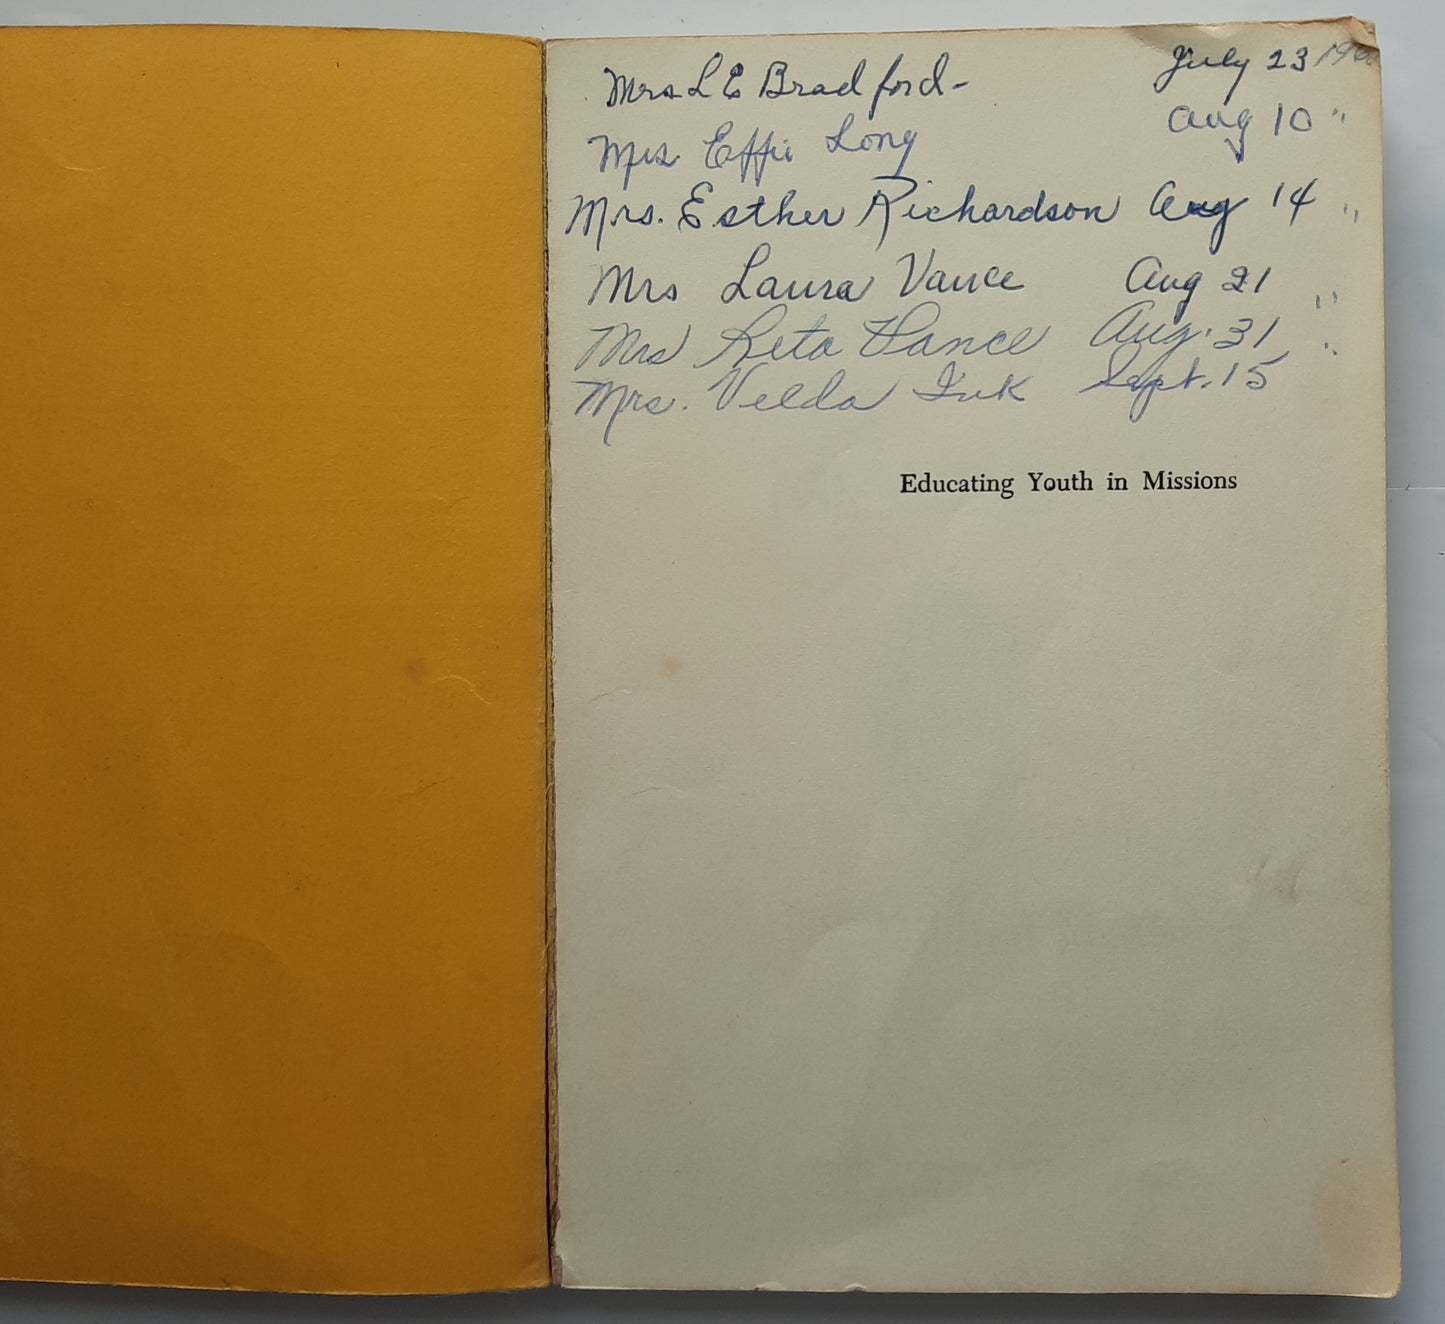 Mrs L E Bradford- July 23
Mrs. Effie Long Aug 10 "
Mrs. Esther Richardson Aug 14 "
Mrs Laura Vance Aug 21 "
Mrs Reta Vance Aug. 31 "
Mrs. Velda Ink Sept. 15
Educating Youth in Missions